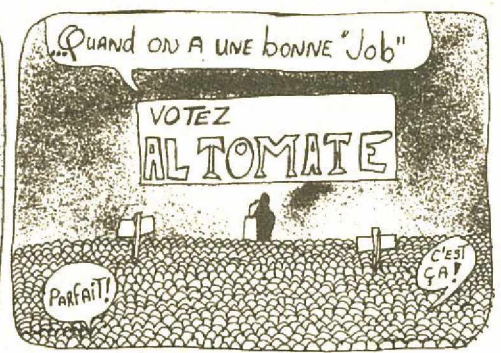 ...Quand on a une bonne "Job"
VOTEZ
AL TOMATE
PARFAIT!
C'EST
ÇA!